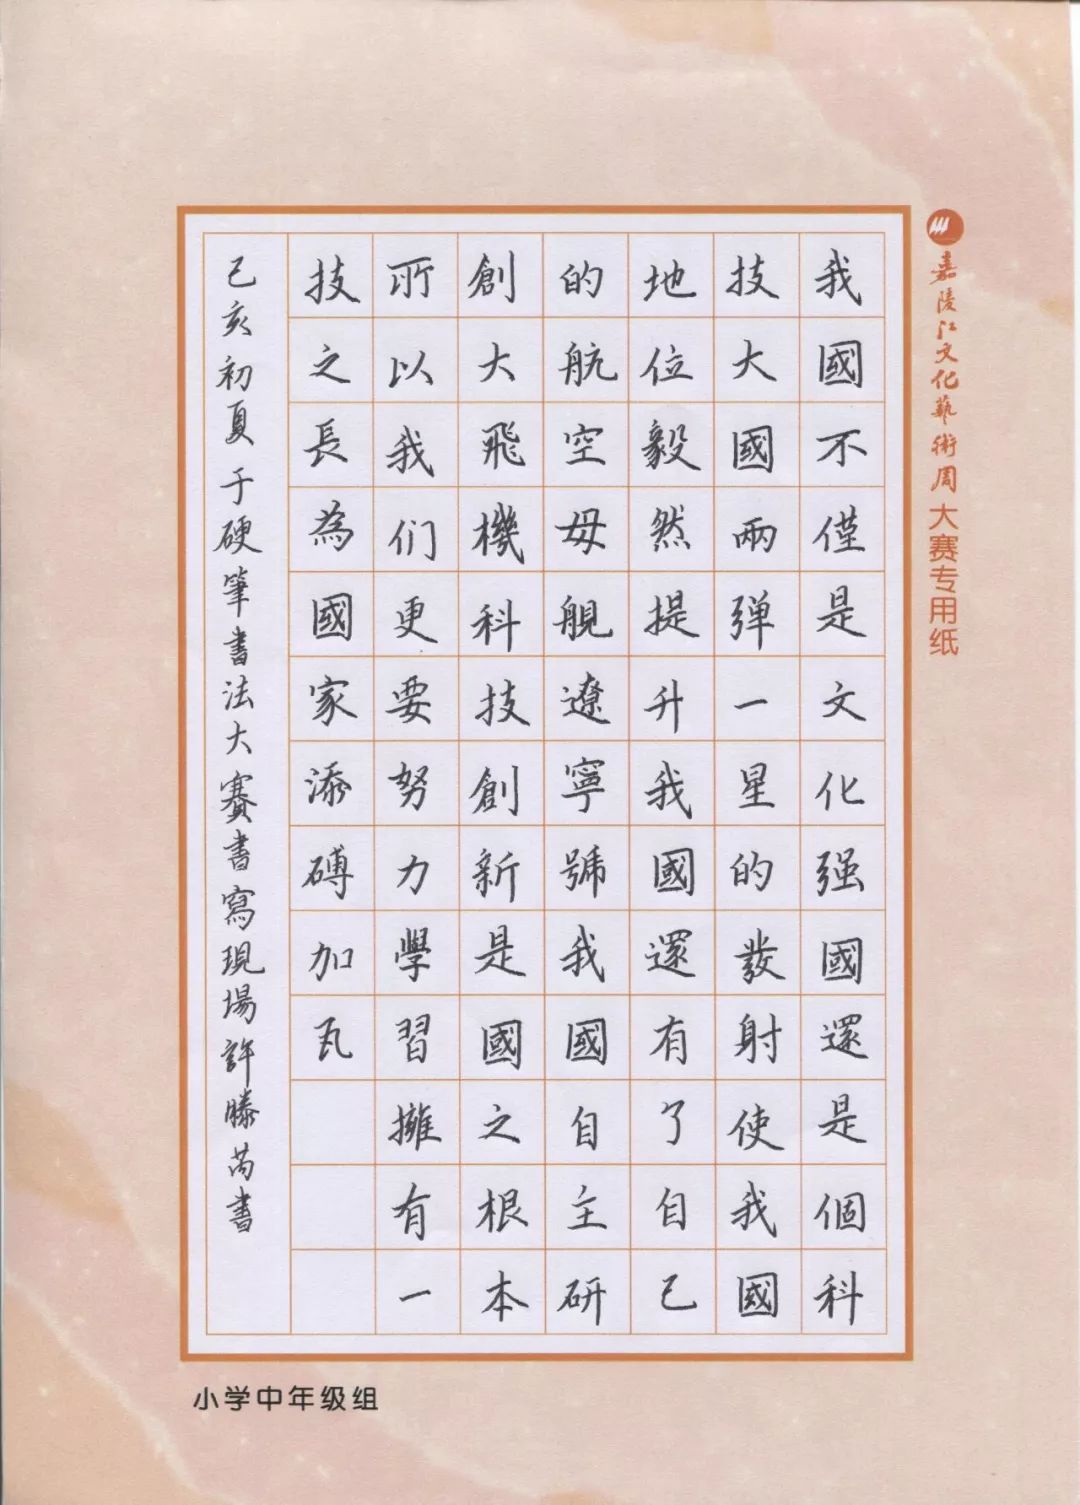 嘉陵江文化藝術周大赛专用纸
我國不僅是文化强國還是個科
技大國兩弹一星的發射使我國
地位毅然提升我國還有了自己
的航空母舰遼寧號我國自主研
創大飛機科技創新是國之根本
所以我们更要努力學習擁有一
技之長為國家添磚加瓦
己亥初夏于硬筆書法大賽書寫現場許滕芮書
小学中年级组